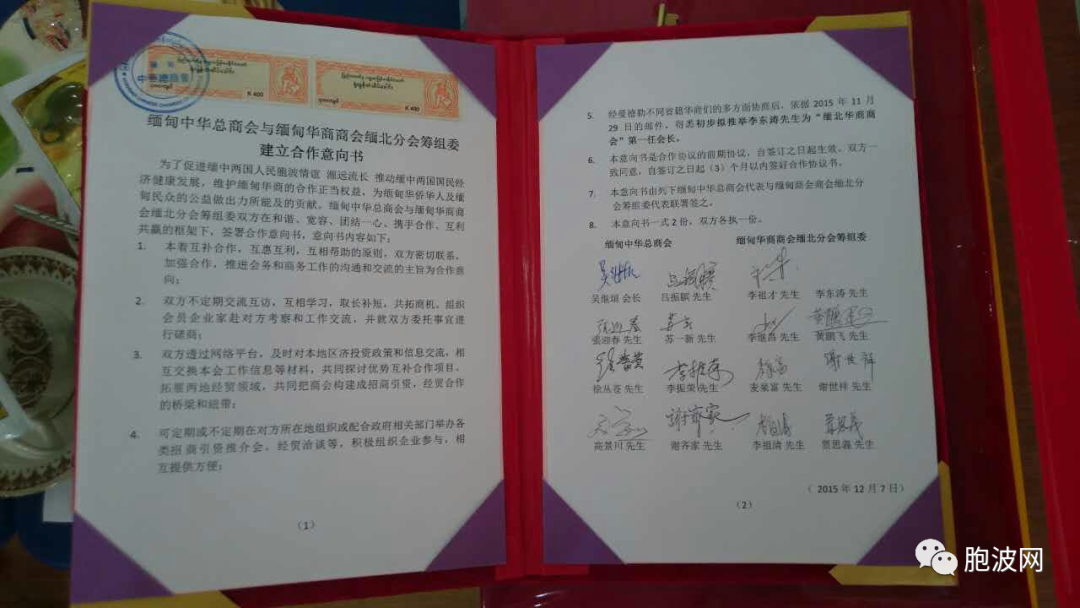 中华总商会
K 400
K 400
缅甸中华总商会与缅甸华商商会缅北分会筹组委
建立合作意向书
为了促进缅中两国人民胞波情谊 源远流长 推动缅中两国国民经
济健康发展，维护缅甸华商的合作正当权益，为缅甸华侨华人及缅
甸民众的公益做出力所能及的贡献。缅甸中华总商会与缅甸华商商
会缅北分会筹组委双方在和谐、宽容、团结一心、携手合作、互利
共赢的框架下，签署合作意向书，意向书内容如下：
1. 本着互补合作，互惠互利，互相帮助的原则，双方密切联系，
加强合作，推进会务和商务工作的沟通和交流的主旨为合作意
向；
2. 双方不定期交流互访，互相学习，取长补短，共拓商机，组织
会员企业家赴对方考察和工作交流，并就双方委托事宜进
行磋商；
3. 双方透过网络平台，及时对本地区济投资政策和信息交流，相
互交换本会工作信息等材料，共同探讨优势互补合作项目，
拓展两地经贸领域，共同把商会构建成招商引资，经贸合作
的桥梁和纽带；
4. 可定期或不定期在对方所在地组织或配合政府相关部门举办各
类招商引资推介会，经贸洽谈等，积极组织企业参与，相
互提供方便；
（1）
5. 经曼德勒不同省籍华商们的多方面协商后，依据 2015 年 11 月
29 日的邮件，得悉初步拟推举李东涛先生为“缅北华商商
会”第一任会长。
6. 本意向书是合作协议的前期协议，自签订之日起生效。双方一
致同意，自签订之日起（3）个月以内签好合作协议书。
7. 本意向书由列下缅甸中华总商会代表与缅甸商会商会缅北分
会筹组委代表联署签之。
8. 本意向书一式 2 份，双方各执一份。
缅甸中华总商会 缅甸华商商会缅北分会筹组委
吴继垣 会长 吕振膑 先生 李祖才 先生 李东涛 先生
张迎春 先生 苏一新 先生 李继昌 先生 黄鹏飞 先生
徐丛苍 先生 李振荣 先生 麦泉富 先生 谢世祥 先生
高景川 先生 谢齐家 先生 李祖清 先生 贾思义 先生
（ 2015 年 12 月 7 日）
（2）
胞波网